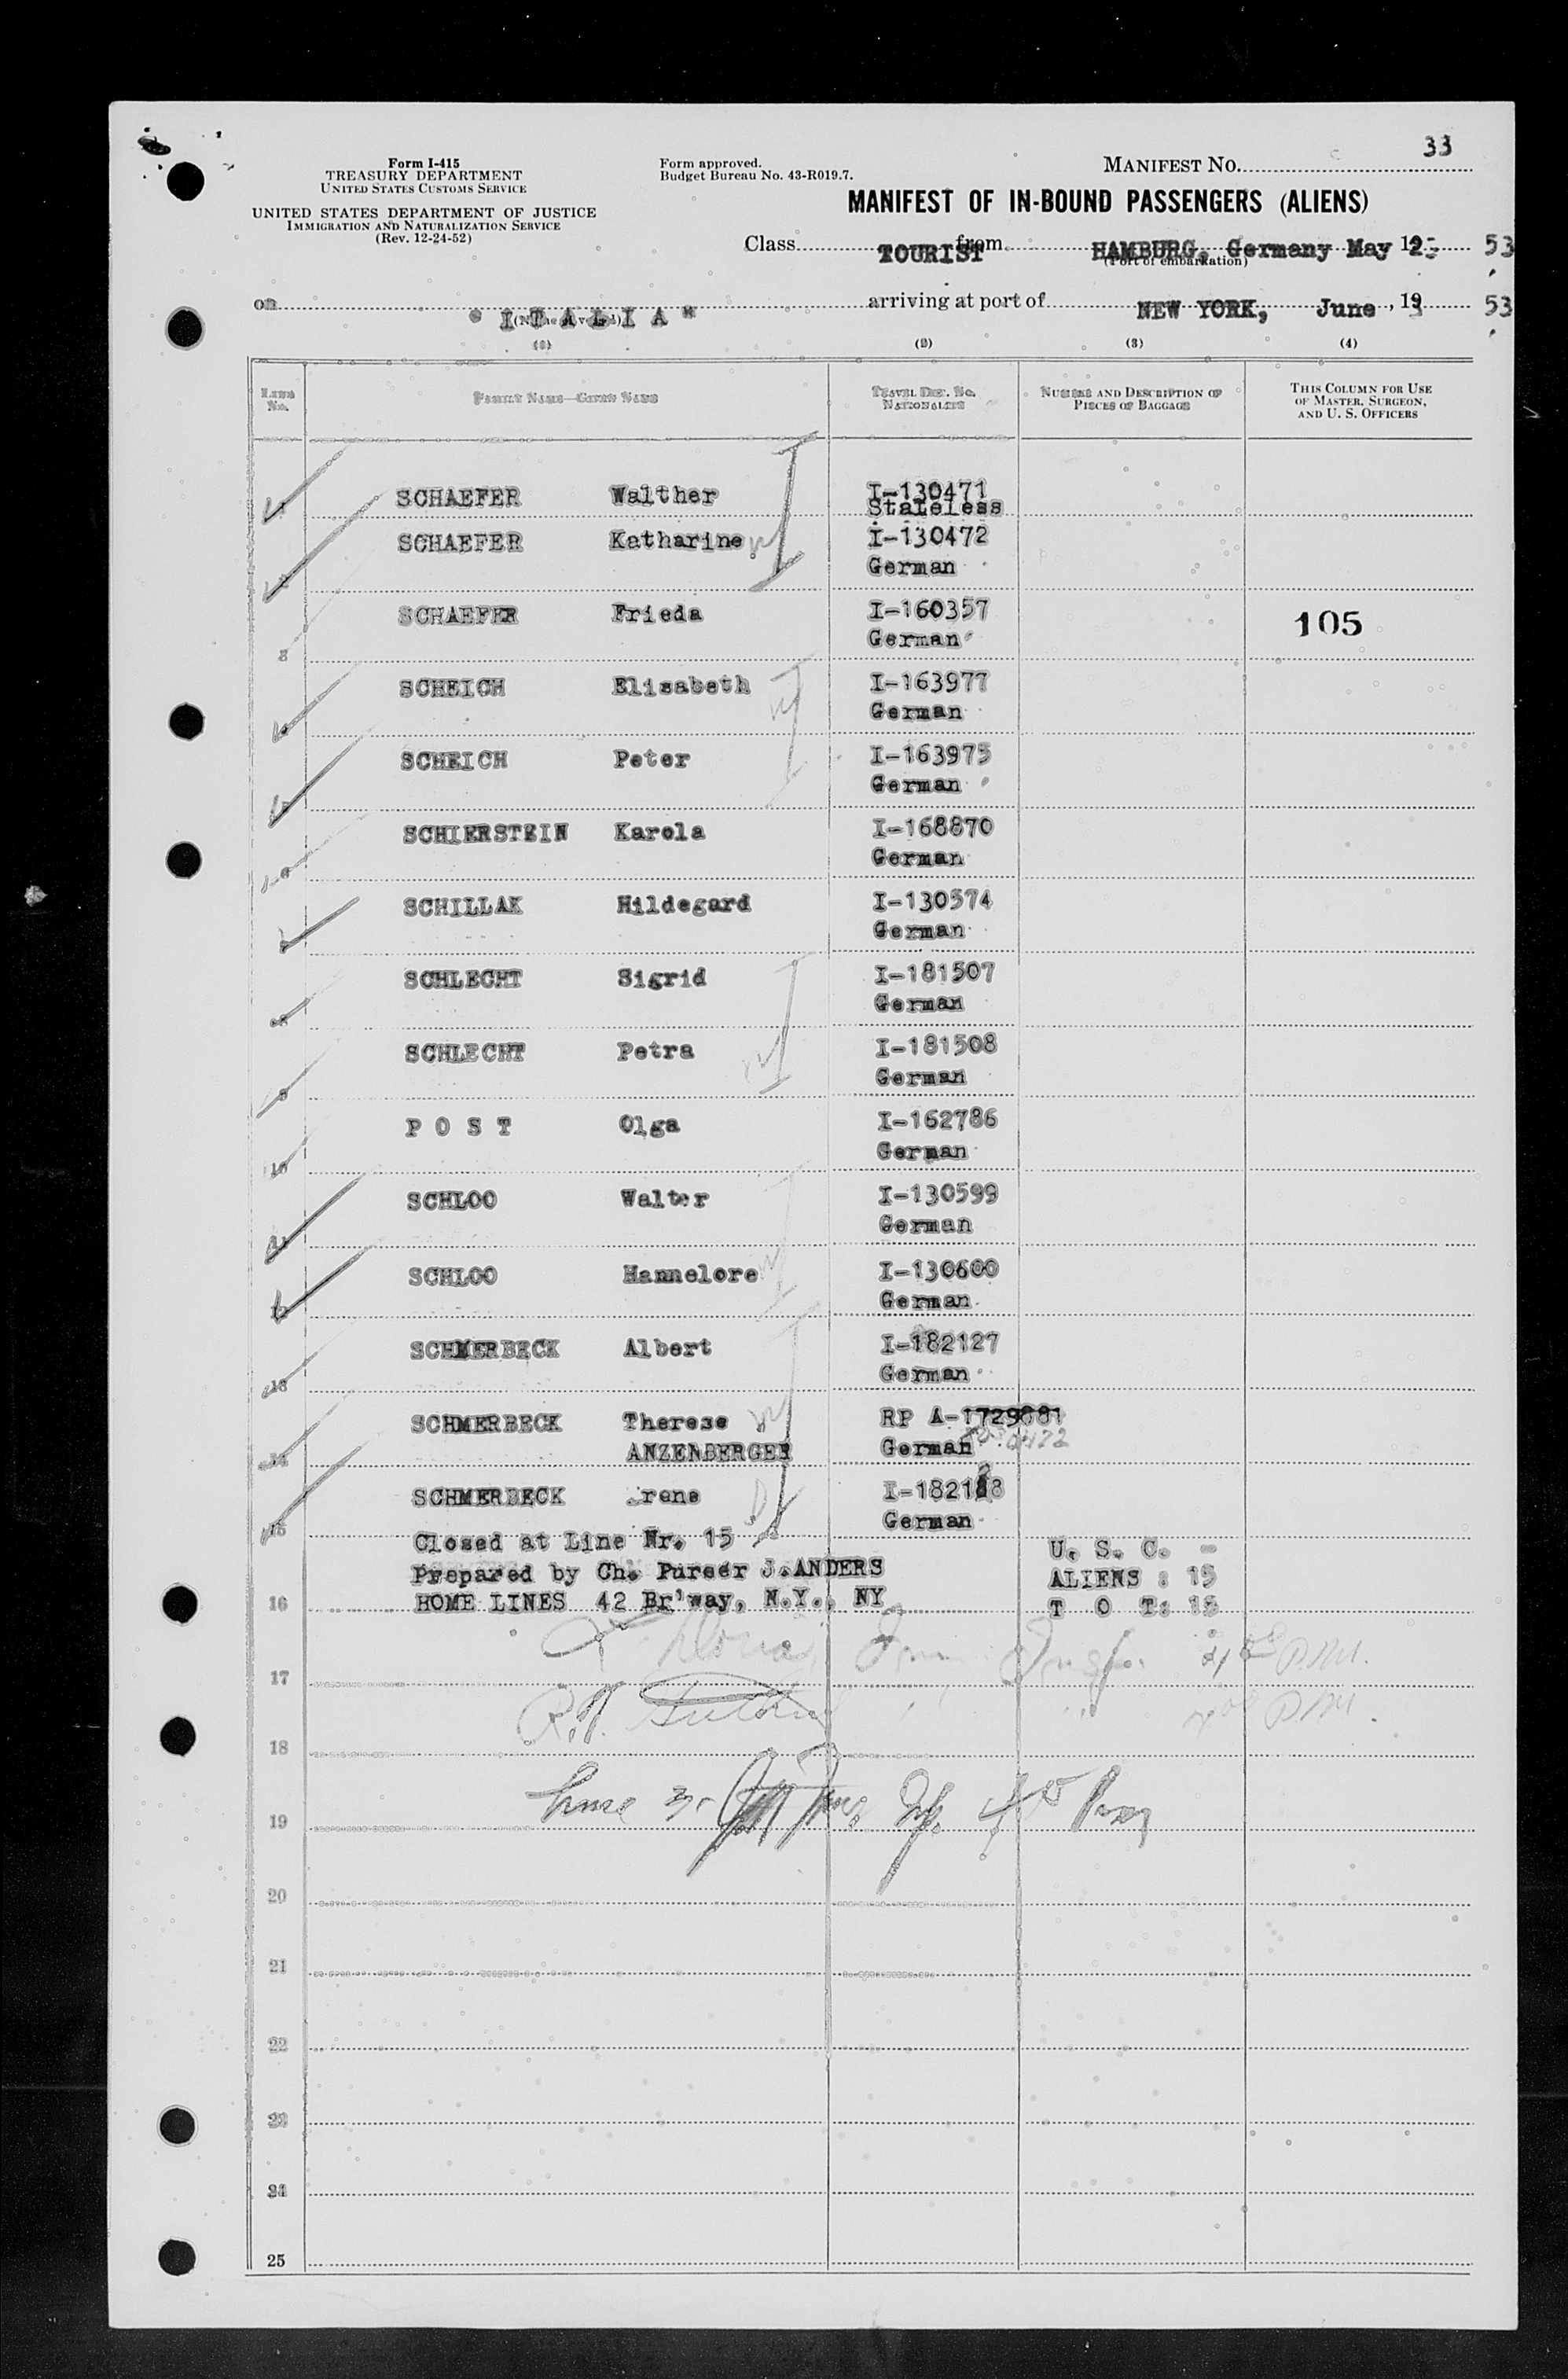 33
Form I-415
TREASURY DEPARTMENT
UNITED STATES CUSTOMS SERVICE
UNITED STATES DEPARTMENT OF JUSTICE
IMMIGRATION AND NATURALIZATION SERVICE
(Rev. 12-24-52)
Form approved.
Budget Bureau No. 43-R019.7.
MANIFEST NO.
MANIFEST OF IN-BOUND PASSENGERS (ALIENS)
Class TOURIST from HAMBURG, Germany May 19 53
(Port of embarkation)
on " ITALIA " arriving at port of NEW YORK, June , 19 53
(1) (2) (3) (4)
LINE No. FAMILY NAME—GIVEN NAME TRAVEL DOC. NO. NATIONALITY NUMBER AND DESCRIPTION OF PIECES OF BAGGAGE THIS COLUMN FOR USE OF MASTER, SURGEON, AND U. S. OFFICERS
1 SCHAEFER Walther I-130471
Stateless
2 SCHAEFER Katharine I-130472
German
3 SCHAEFER Frieda I-160357 105
German
4 SCHEICH Elisabeth I-163977
German
5 SCHEICH Peter I-163975
German
6 SCHIERSTEIN Karola I-168870
German
7 SCHILLAK Hildegard I-130574
German
8 SCHLECHT Sigrid I-181507
German
9 SCHLECHT Petra I-181508
German
10 P O S T Olga I-162786
German
11 SCHLOO Walter I-130599
German
12 SCHLOO Hannelore I-130600
German
13 SCHMERBECK Albert I-182127
German
14 SCHMERBECK Therese RP A-1729881
ANZENBERGER German
15 SCHMERBECK Irene I-182128
German
Closed at Line Nr. 15 U. S. C. -
Prepared by Ch. Purser J.ANDERS ALIENS : 15
16 HOME LINES 42 Br'way, N.Y., NY T O T: 15
17 PM.
18 PM.
19
20
21
22
23
24
25